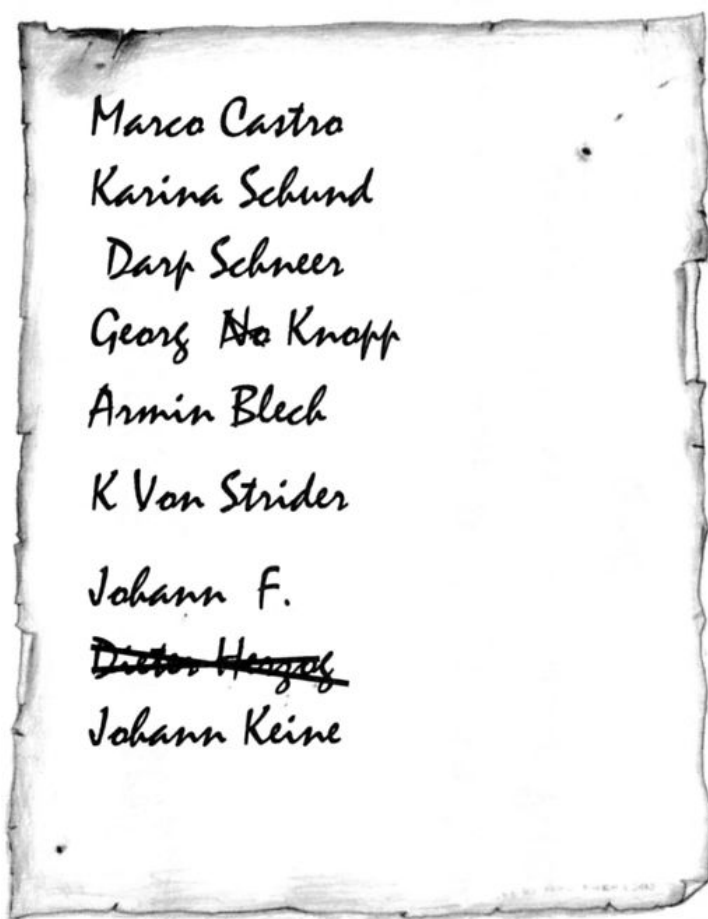 Marco Castro
Karina Schund
Darp Schneer
Georg No Knopp
Armin Blech
K Von Strider
Johann F.
Dieter Herzog
Johann Keine